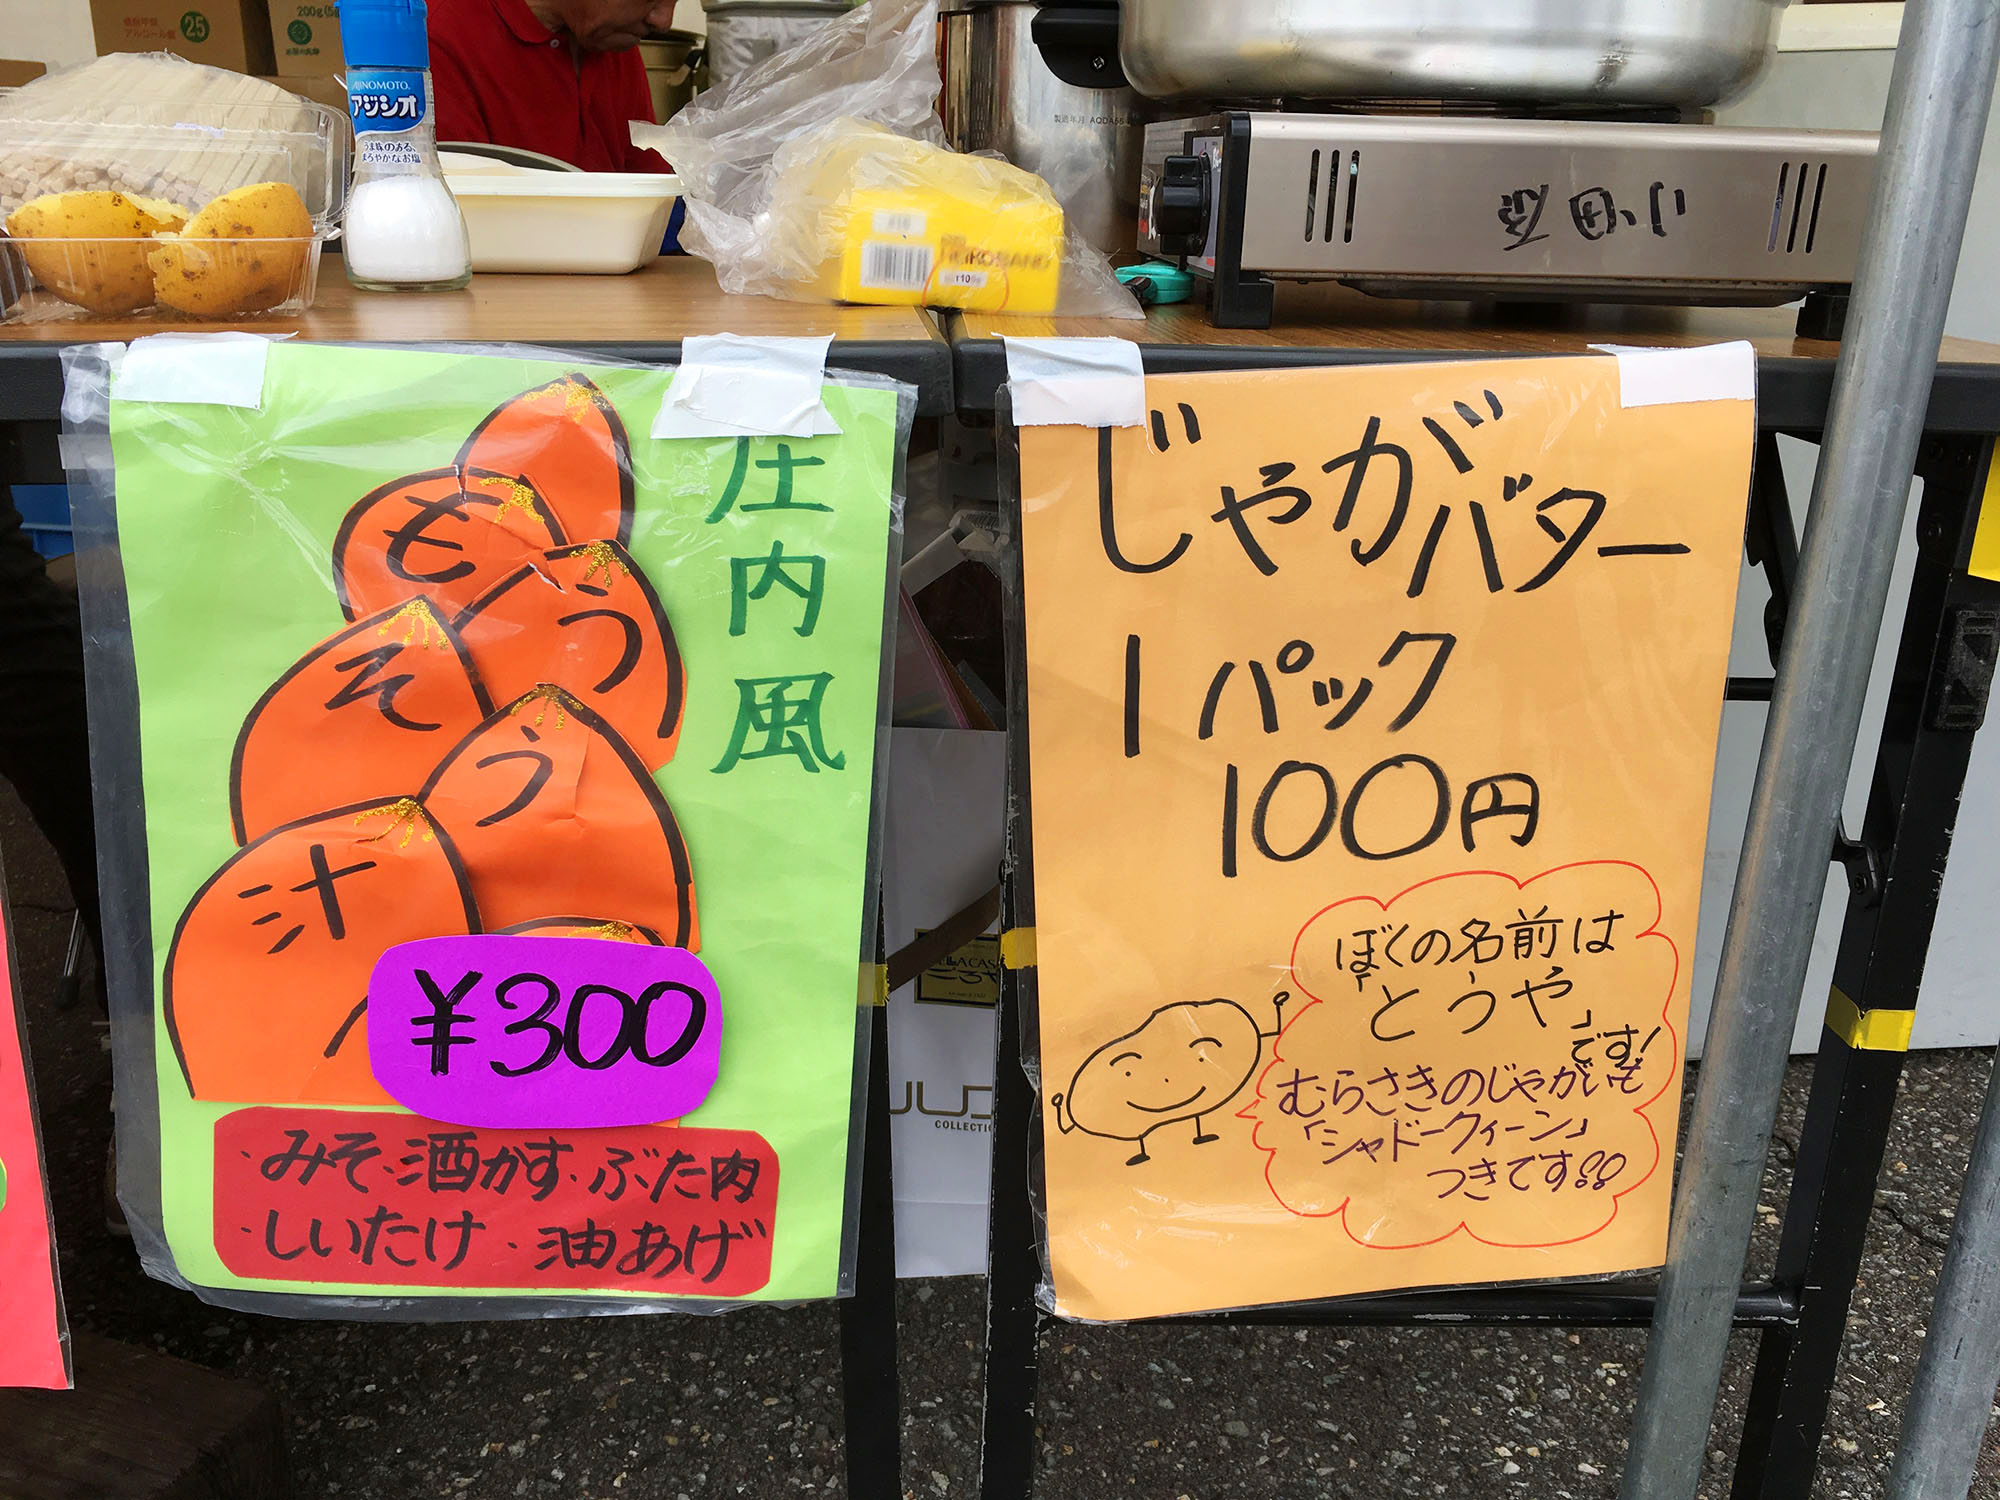 低刺激
アルコール
25
200g
AJINOMOTO
アジシオ
うま味のある、
まろやかなお塩
製造年月 AQDA55
庄内風
もうそう汁
¥300
・みそ・酒かす・ぶた肉
・しいたけ・油あげ
じゃがバター
1パック
100円
ぼくの名前は
「とうや」
です!
むらさきのじゃがいも
「シャドークイーン」
つきです!!
COLLECTION